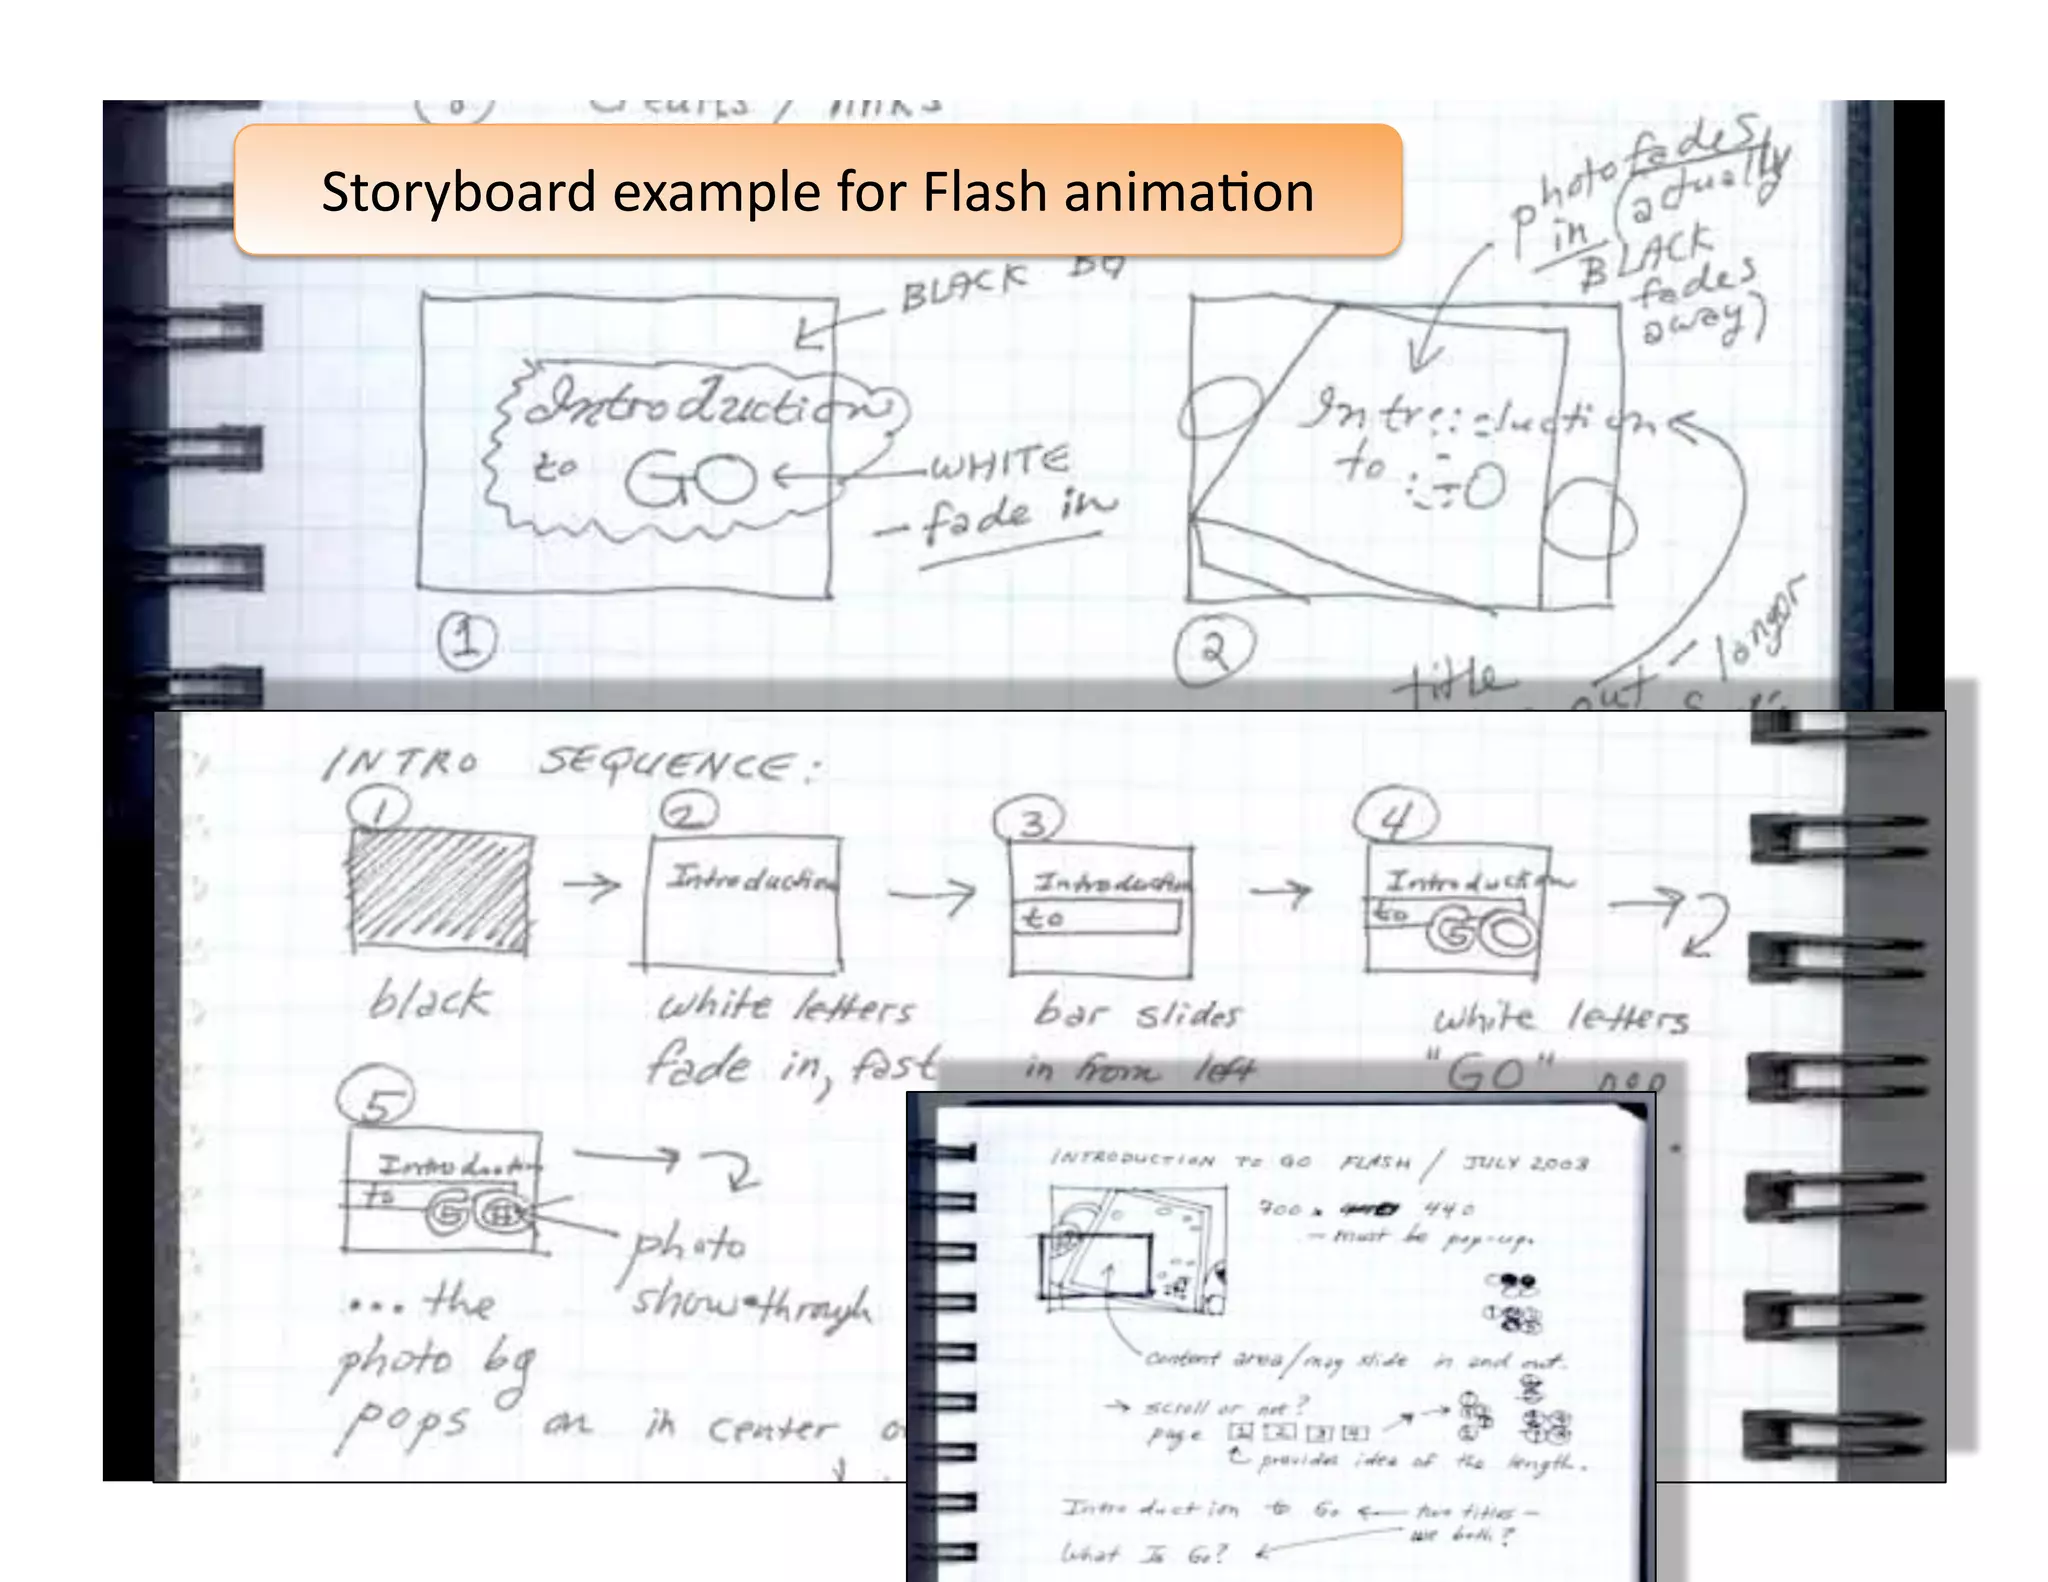 credits / links
Storyboard example for Flash animation
BLACK BG
Introduction
to GO
WHITE
- fade in
1
photo fades
in (actually
BLACK
fades
away)
Introduction
to GO
2
title
out - longer
INTRO SEQUENCE:
1
2
3
4
Introduction
Introduction
to
Introduction
to GO
black
white letters
fade in, fast
bar slides
in from left
white letters
"GO" pop
5
Introduction
to GO
photo
show-through
... the
photo bg
pops on in center
INTRODUCTION TO GO FLASH / JULY 2003
700 x 440
- must be pop-up.
content area/may slide in and out.
→ scroll or not?
page 1 2 3 4
provides idea of the length.
Introduction to Go ← two titles -
use both?
What Is Go?